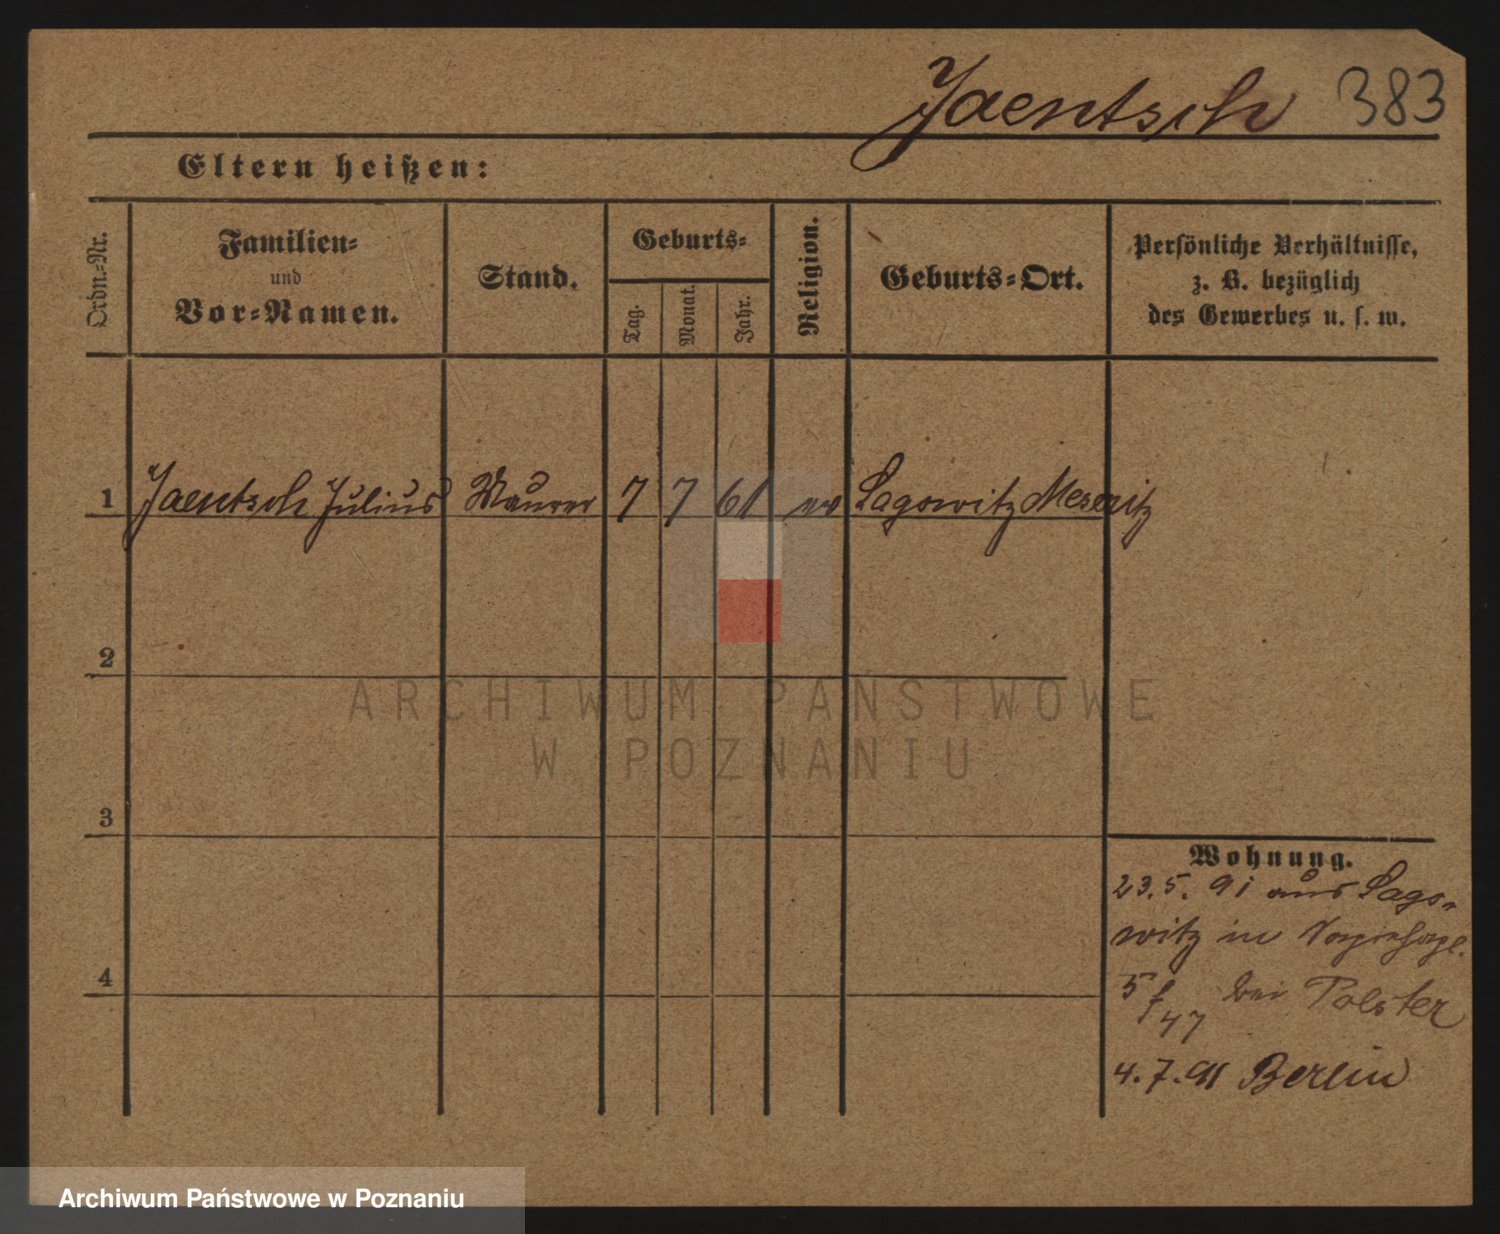 Jaentsch 383
Eltern heißen:
Ordn.=Nr.
Familien=
und
Vor=Namen.
Stand.
Geburts=
Tag.
Monat.
Jahr.
Religion.
Geburts=Ort.
Persönliche Verhältnisse,
z. B. bezüglich
des Gewerbes u. s. w.
1 Jaentsch Julius Maurer 7 7 61 ev Lagowitz Meseritz
2
ARCHIWUM PAŃSTWOWE
W POZNANIU
3
Wohnung.
23.5. 91 aus Lago-
witz in
4
bei Polster
47
4.7.91 Berlin
Archiwum Państwowe w Poznaniu